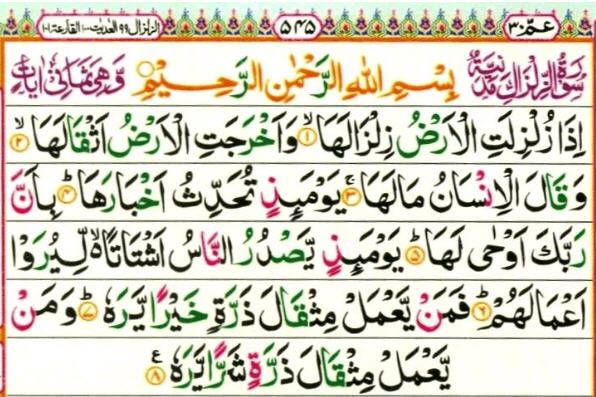 عمّ ٣٠ ٥٤٥ الزلزال ٩٩ العديت ١٠٠ القارعة ١٠١
سُوْرَةُ الزِّلْزَالِ مَدَنِيَّةٌ بِسْمِ اللهِ الرَّحْمٰنِ الرَّحِيْمِ وَّهِيَ ثَمَانِيْ اٰيَاتٍ
اِذَا زُلْزِلَتِ الْاَرْضُ زِلْزَالَهَا ۙ﴿١﴾ وَاَخْرَجَتِ الْاَرْضُ اَثْقَالَهَا ۙ﴿٢﴾
وَقَالَ الْاِنْسَانُ مَالَهَا ۚ﴿٣﴾ يَوْمَىِٕذٍ تُحَدِّثُ اَخْبَارَهَا ۙ﴿٤﴾ بِاَنَّ
رَبَّكَ اَوْحٰى لَهَا ؕ﴿٥﴾ يَوْمَىِٕذٍ يَّصْدُرُ النَّاسُ اَشْتَاتًا ۙ۬ لِّيُرَوْا
اَعْمَالَهُمْ ؕ﴿٦﴾ فَمَنْ يَّعْمَلْ مِثْقَالَ ذَرَّةٍ خَيْرًا يَّرَهٗ ؕ﴿٧﴾ وَمَنْ
يَّعْمَلْ مِثْقَالَ ذَرَّةٍ شَرًّا يَّرَهٗ ﴿٨﴾ ع